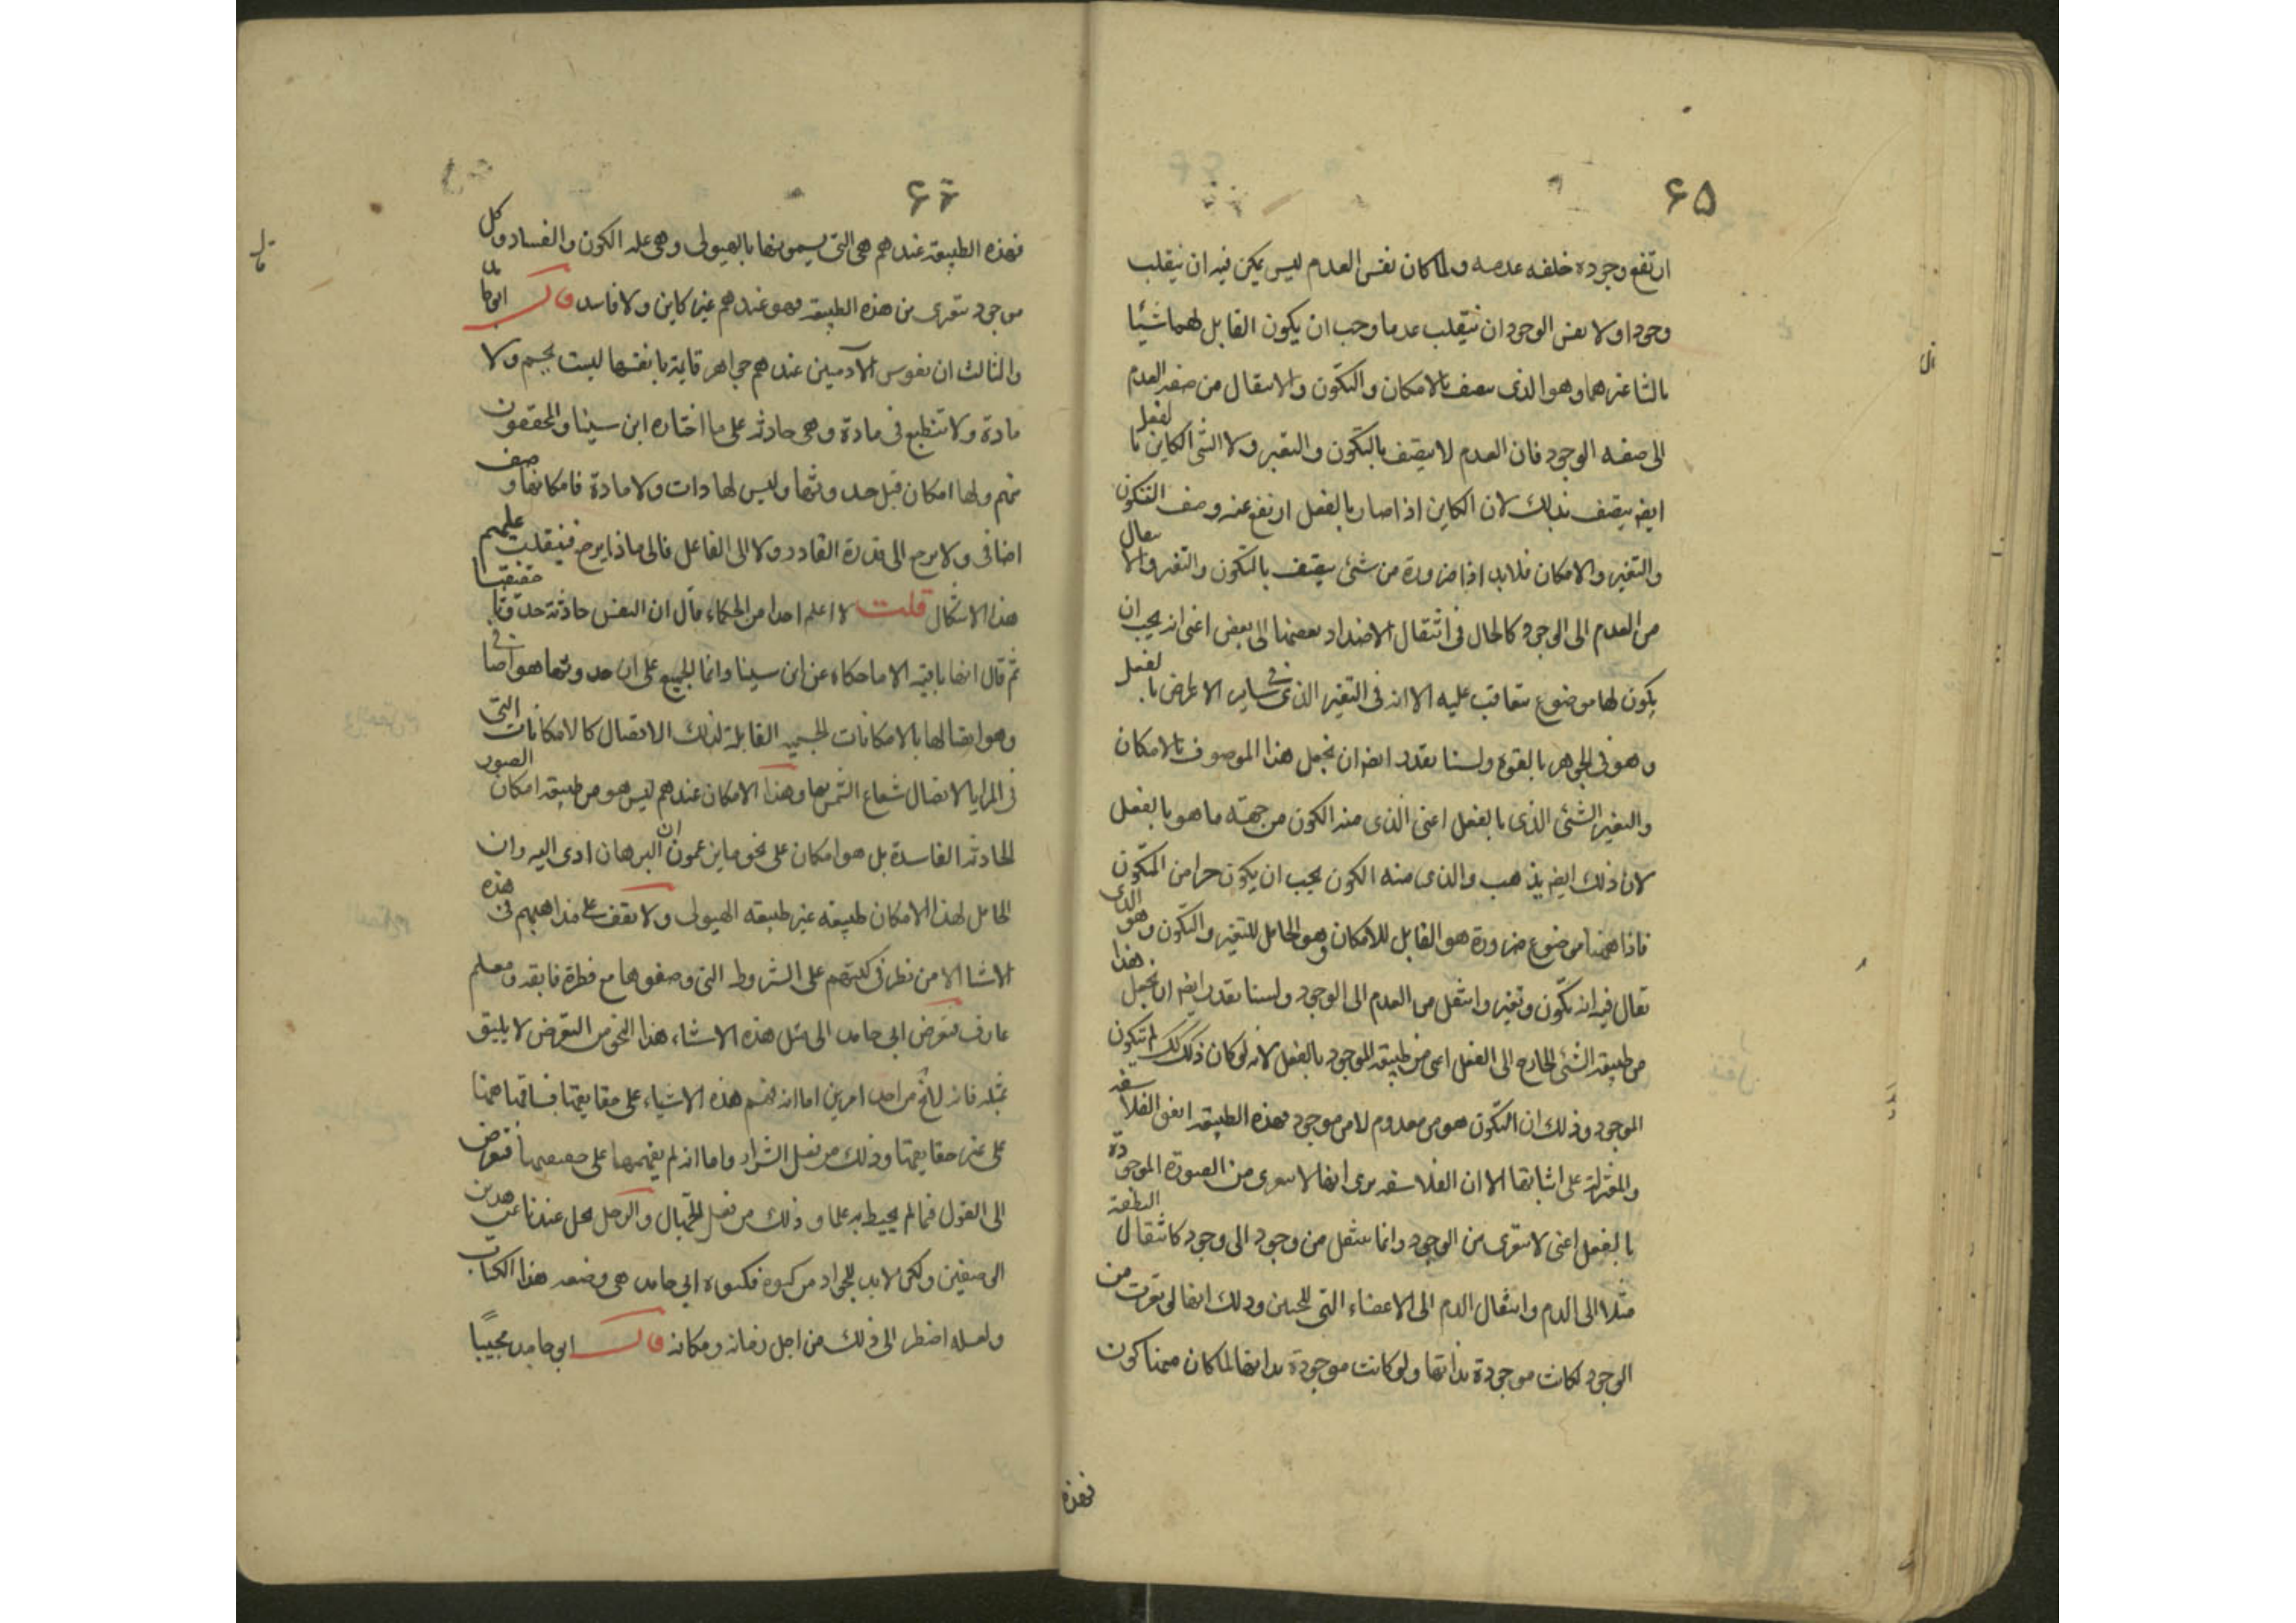 ۶۵
ارتفع وجوده خلفه عدمه ولما كان نفس العدم ليس يمكن فيه ان ينقلب
وجودا ولا نفس الوجود ان ينقلب عدما وجب ان يكون القابل لهما شيئا
ثالثا غيرهما وهو الذى يتصف بالامكان والتكون والانتقال من صفة العدم
الى صفه الوجود فان العدم لا يتصف بالتكون والتغير ولا الشئ الكاين بالفعل
ايضه يتصف بذلك لان الكاين اذا صار بالفعل ارتفع عنه وصف التكون
والتغير والامكان فلا بد اذا ضرورة من شئ يتصف بالتكون والتغير والانتقال
من العدم الى الوجود كالحال فى انتقال الاضداد بعضها الى بعض اعنى انه يجب ان
يكون لها موضوع تتعاقب عليه الا انه فى التغير الذى فى ساير الاعراض بالفعل
وهو فى الجوهر بالقوة ولسنا نقدر ايضه ان نجعل هذا الموصوف بالامكان
والتغير الشئ الذى بالفعل اعنى الذى منه الكون من جهة ما هو بالفعل
لان ذلك ايضه يذهب والذى منه الكون يجب ان يكون جزا من المتكون
فاذا ههنا موضوع ضرورة هو القابل للامكان وهو الحامل للتغير والتكون وهو الذى
يقال فيه انه تكون وتغير وانتقل من العدم الى الوجود ولسنا نقدر ايضه ان نجعل هذا
من طبيعة الشئ الخارج الى الفعل اعنى من طبيعة الموجود بالفعل لانه لو كان ذلك كك لم يتكون
الموجود وذلك ان التكون هو من معدوم لا من موجود فهذه الطبيعة اتفق الفلاسفه
والمعتزلة على اثباتها الا ان الفلاسفه يرى انها لا تتعرى من الصورة الموجودة
بالفعل اعنى لا تتعرى من الوجود وانما تنتقل من وجود الى وجود كانتقال النطفة
مثلا الى الدم وانتقال الدم الى الاعضاء التى للجنين وذلك انها لو تعرت من
الوجود لكانت موجودة بذاتها ولو كانت موجودة بذاتها لما كان منها كون
فهذه
۶۶
فهذه الطبيعة عندهم هى التى يسمونها بالهيولى وهى علة الكون والفساد وكل
موجود يتعرى من هذه الطبيعة فهو عندهم غير كاين ولا فاسد قال ابو حامد
والثالث ان نفوس الآدميين عندهم جواهر قايمة بانفسها ليست بجسم ولا
مادة ولا تنطبع فى مادة وهى حادثة على ما اختاره ابن سينا والمحققون
منهم ولها امكان قبل حدوثها وليس لها ذات ولا مادة فامكانها وصف
اضافى ولا يرجع الى قدرة القادر ولا الى الفاعل فالى ماذا يرجع فينقلب عليهم
هذا الاشكال قلت لا اعلم احدا من الحكماء قال ان النفس حادثة حدوثا حقيقيا
ثم قال انها باقية الا ما حكاه عن ابن سينا وانما الجميع على ان حدوثها هو اضافى
وهو اتصالها بالامكانات الجسميه القابلة لذلك الاتصال كالامكانات التى
فى المرايا لاتصال شعاع الشمس بها وهذا الامكان عندهم ليس هو من طبيعة امكان الصور
الحادثة الفاسدة بل هو امكان على نحو ما يزعمون ان البرهان ادى اليه وان
الحامل لهذا الامكان طبيعة غير طبيعة الهيولى ولا يقف على مذاهبهم فى هذه
الاشيا الا من نظر فى كتبهم على الشروط التى وصفوها مع فطرة فايقة ومعلم
عارف فتعرض ابى حامد الى مثل هذه الاشياء هذا النحو من التعرض لا يليق
بمثله فانه لا يخ من احد امرين اما انه فهم هذه الاشياء على حقايقها فساقها ههنا
على غير حقايقها وذلك من فعل الشرار واما انه لم يفهمها على حقيقتها فتعرض
الى القول فيما لم يحيط به علما وذلك من فعل الجهال والرجل يجل عندنا عن هذين
الوصفين ولكن لا بد للجواد من كبوه فكبوة ابى حامد هى وضعه هذا الكتاب
ولعله اضطر الى ذلك من اجل زمانه ومكانه قال ابو حامد مجيبًا